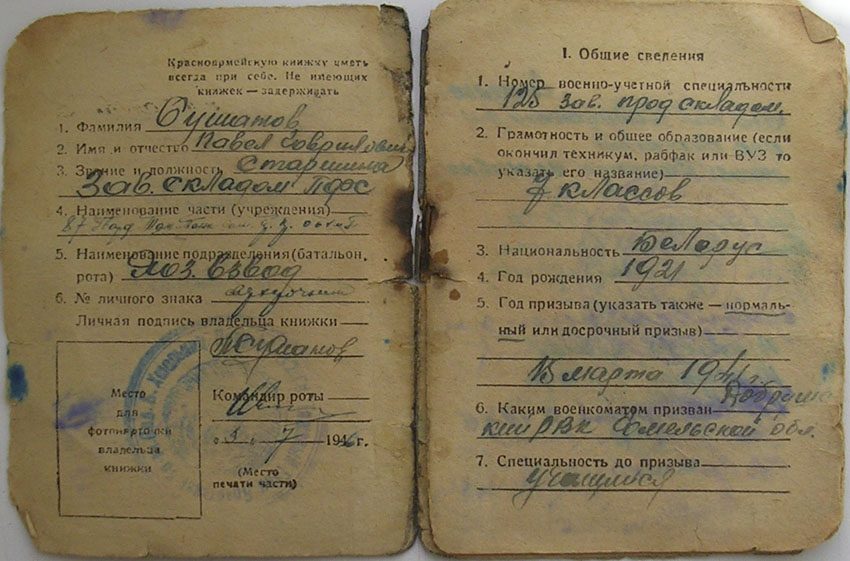 Красноармейскую книжку иметь
всегда при себе. Не имеющих
книжек — задерживать
1. Фамилия
2. Имя и отчество Павел Гаврилович
3. Звание и должность Старшина
Зав. складом ПФС
4. Наименование части (учреждения)
87 Гвард
5. Наименование подразделения (батальон,
рота) Хоз. взвод
6. № личного знака
Личная подпись владельца книжки
Место
для
фотокарточки
владельца
книжки
Командир роты
7 1946 г.
(Место
печати части)
I. Общие сведения
1. Номер военно-учетной специальности
125 зав. прод складом.
2. Грамотность и общее образование (если
окончил техникум, рабфак или ВУЗ то
указать его название)
7 классов
3. Национальность Беларус
4. Год рождения 1921
5. Год призыва (указать также — нормаль-
ный или досрочный призыв)
марта 1941 г.
6. Каким военкоматом призван Добруш
кий РВК Гомельской обл.
7. Специальность до призыва
учащийся